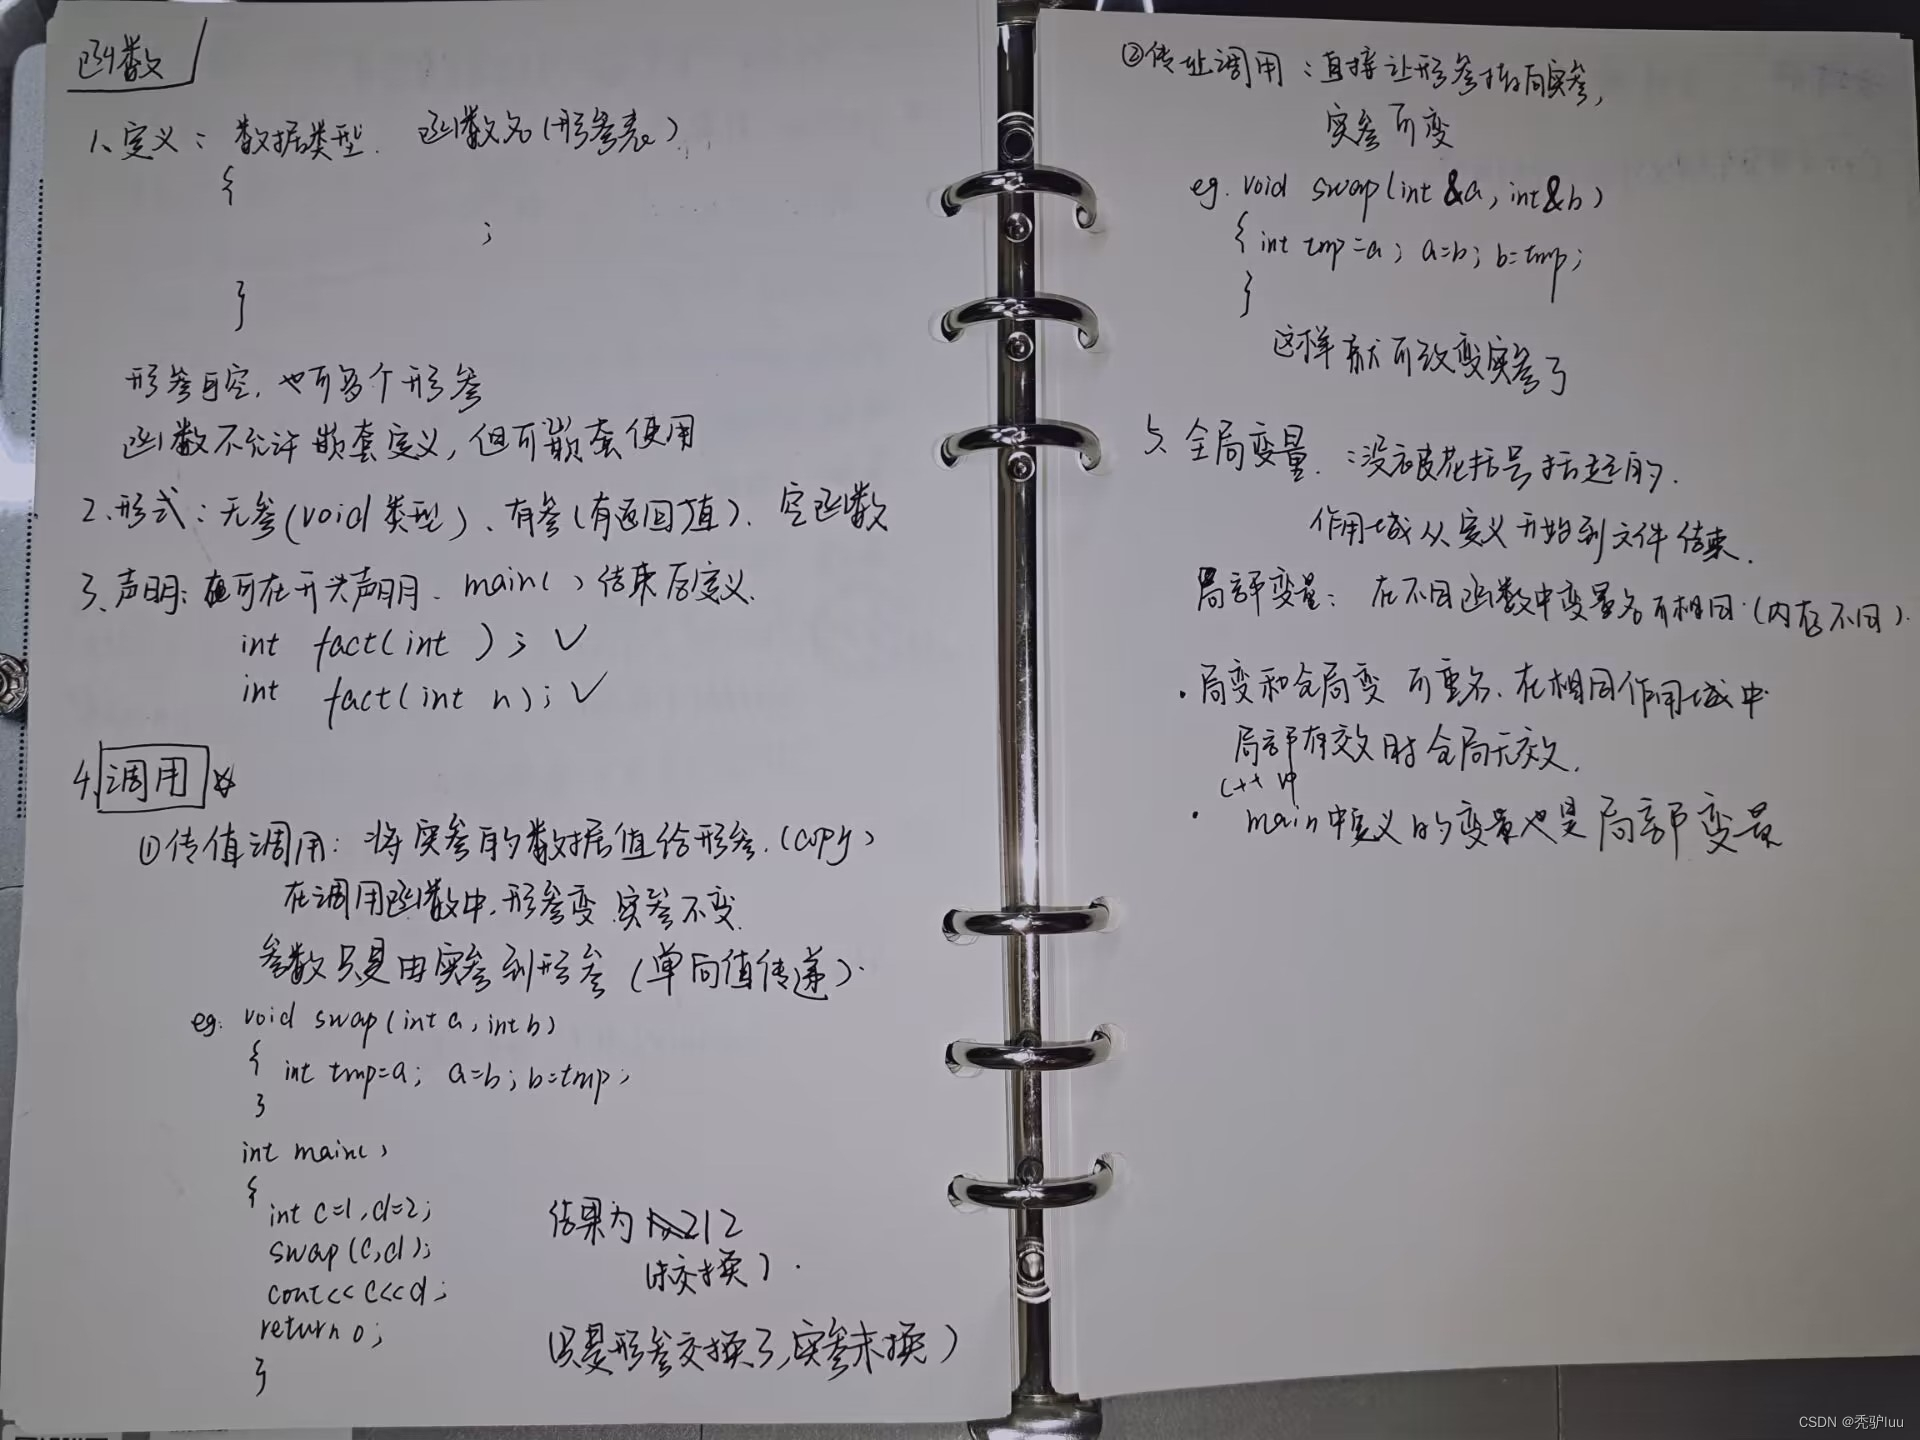 函数
1、定义： 数据类型 函数名（形参表）
{
;
}
形参可空，也可多个形参
函数不允许嵌套定义，但可嵌套使用
2、形式：无参（void类型）、有参（有返回值）、空函数
3、声明：可在开头声明、main()结束后定义.
int fact(int ); ✓
int fact(int n); ✓
4、调用 ☆
①传值调用：将实参的数据值给形参.(copy)
在调用函数中，形参变 实参不变.
参数只是由实参到形参（单向值传递）.
eg. void swap(int a, int b)
{ int tmp=a; a=b; b=tmp;
}
int main()
{
int c=1, d=2;
swap(c,d);
cout<< c<<d;
return 0;
}
结果为 12
(未交换).
(只是形参交换了,实参未换)
②传址调用：直接让形参指向实参，
实参可变
eg. void swap(int &a, int &b)
{ int tmp=a; a=b; b=tmp;
}
这样就可改变实参了
5、全局变量：没被花括号括起的.
作用域从定义开始到文件结束.
局部变量：在不同函数中变量名可相同.(内存不同).
·局变和全局变 可重名.在相同作用域中
局部有效时全局无效.
C++中
· main中定义的变量也是局部变量
CSDN @秃驴luu